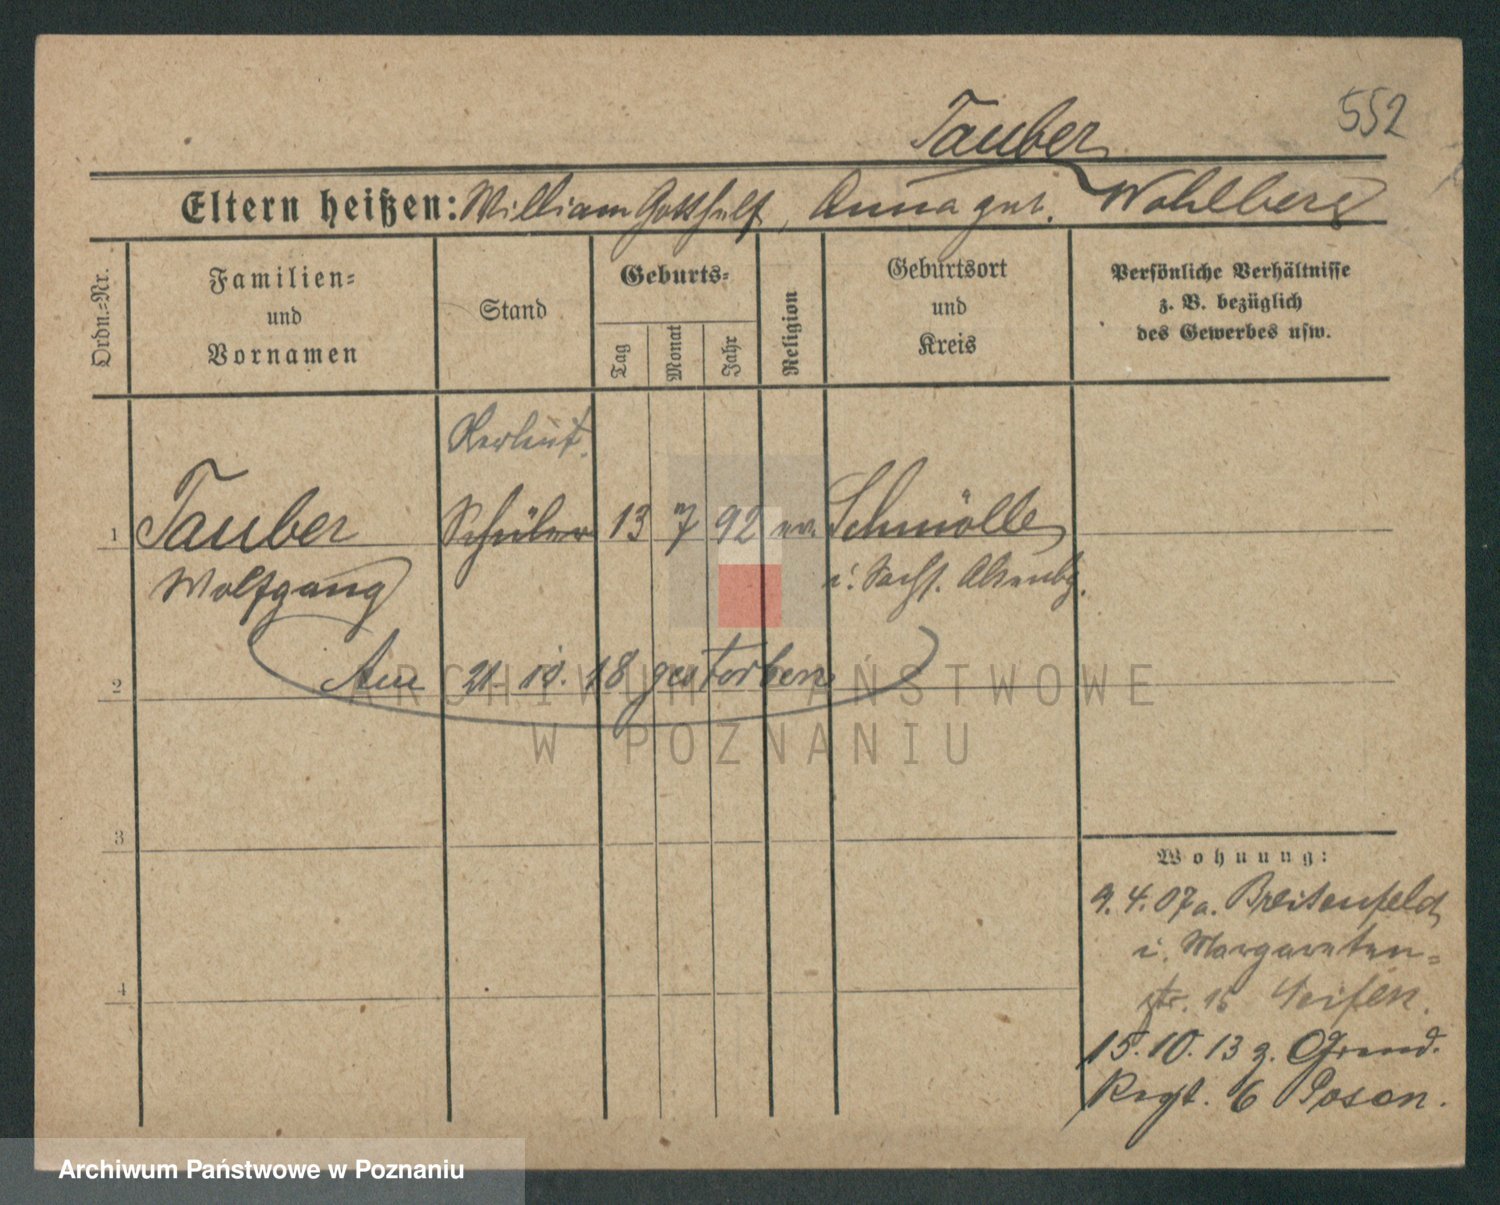 552
Tauber
Eltern heißen: William Gotthelf, Anna geb. Wohlberg
Ordn.-Nr.
Familien-
und
Vornamen
Stand
Geburts-
Tag
Monat
Jahr
Religion
Geburtsort
und
Kreis
Persönliche Verhältnisse
z. B. bezüglich
des Gewerbes usw.
1
Tauber
Wolfgang
Schüler
13
7
92
ev.
Schmölle
i. Sachs. Altenbg.
2
Am 21. 10. 18 gestorben
3
4
Wohnung:
9. 4. 07 a. Breitenfeld
i. Margareten-
str. 15
15. 10. 13 z. Grend.
Regt. 6 Posen.
ARCHIWUM PAŃSTWOWE
W POZNANIU
Archiwum Państwowe w Poznaniu